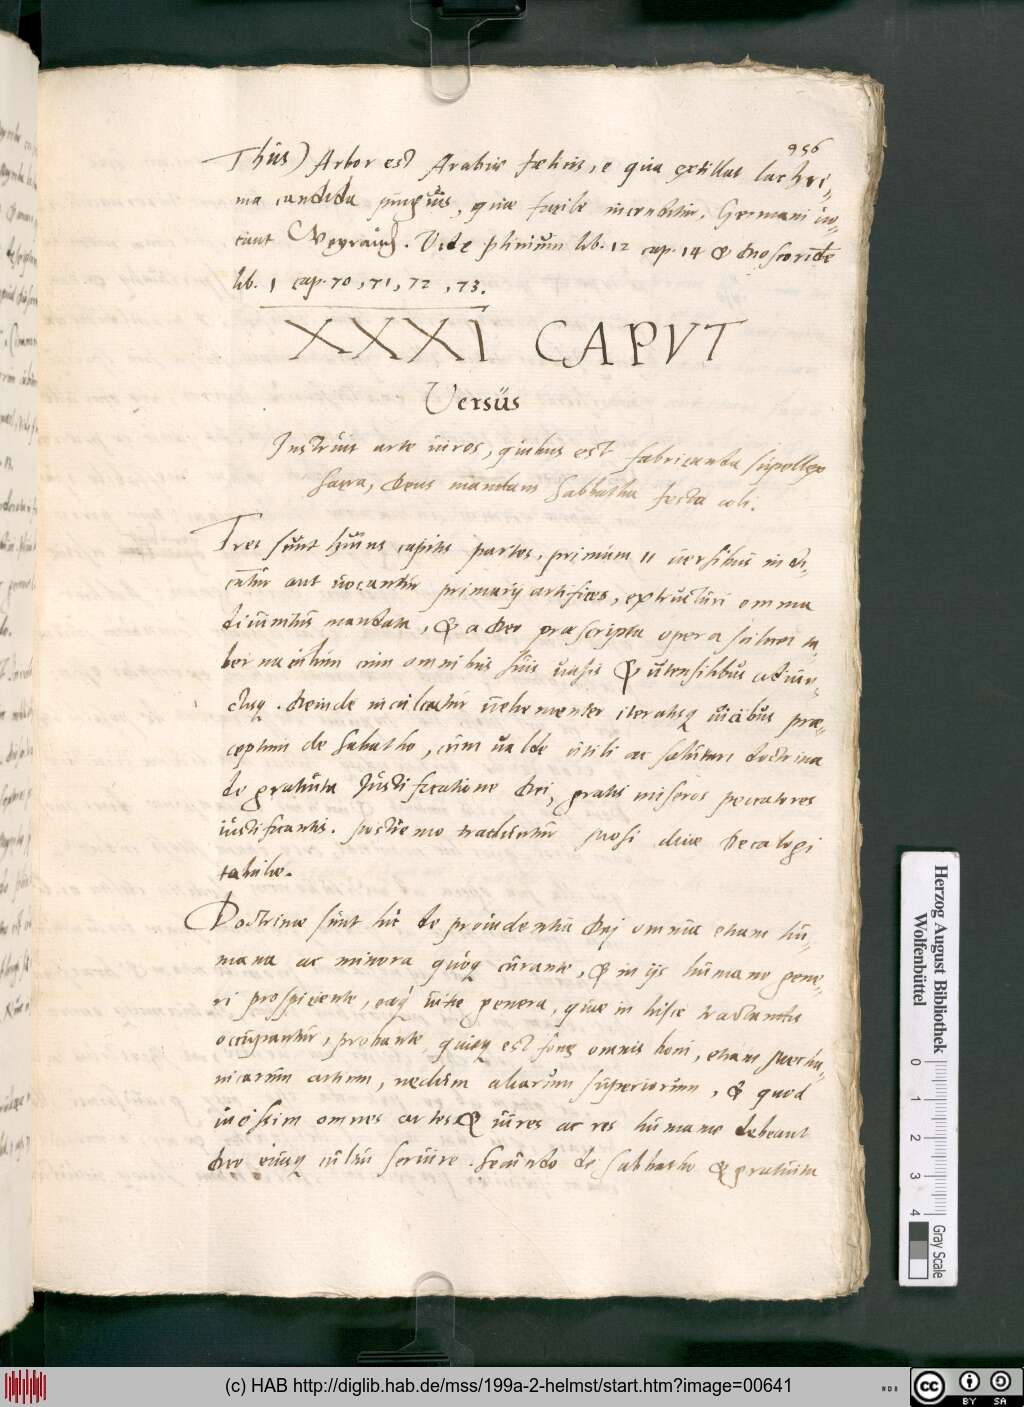 956
Thus) Arbor est Arabiæ fœlicis, e qua extillat lachri=
ma candida pinguis, quæ facile incenditur. Germani uo=
cant Weyrauch. Vide plinium lib. 12 cap. 14 & dioscoride
lib. 1 cap. 70, 71, 72, 73.
XXXI CAPVT
Versus
Instruit arte uiros, quibus est fabricanda supellex
Sacra, deus mandans Sabbatha festa coli.
Tres sunt huius capitis partes, primum 11 uersibus indi=
cantur aut uocantur primarij artifices, extructuri omnia
diuinitus mandata, & a deo præscripta opera scilicet ta=
bernaculum cum omnibus suis uasis & utensilibus adiun=
ctisq. deinde inculcatur uehementer iteratisq uicibus præ=
ceptum de Sabatho, cum ualde utili ac salutari doctrina
de gratuita Justificatione dei, gratis miseros peccatores
iustificantis. postremo traduntur Mosi duæ decalogi
tabulæ.
Doctrinæ sunt hic de prouidentia dei omnia etiam hu=
mana ac minora quoq curante, & in ijs humano gene=
ri prospiciente, eaq uitæ genera, quæ in hisce tractandis
occupantur, probante quisq est fons omnis boni, etiam mecha=
nicarum artium, nedum aliarum superiorum, & quod
uicissim omnes artes & uires ac res humanæ debeant
deo eiusq cultui seruire. Secundo de Sabbatho & gratuita
Herzog August Bibliothek
Wolfenbüttel
0 1 2 3 4
Gray Scale
(c) HAB http://diglib.hab.de/mss/199a-2-helmst/start.htm?image=00641
cc BY SA